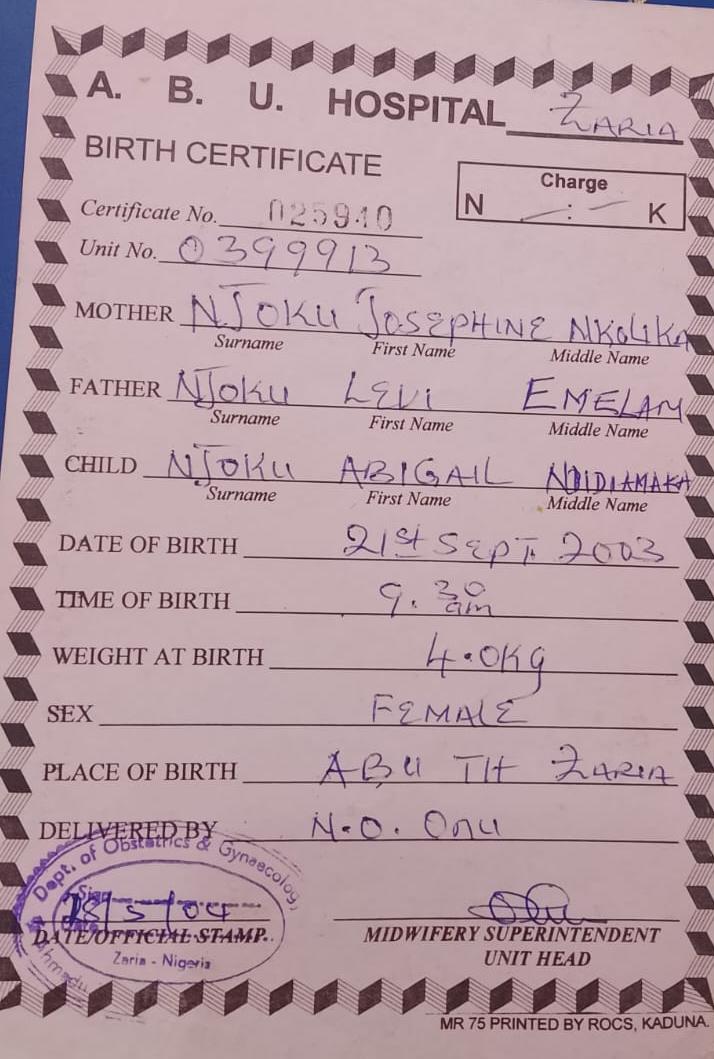 A. B. U. HOSPITAL ZARIA
BIRTH CERTIFICATE
Charge
N - : - K
Certificate No. 025940
Unit No. 0399913
MOTHER NJOKU JOSEPHINE NKOLIKA
Surname First Name Middle Name
FATHER NJOKU LEVI EMELAM
Surname First Name Middle Name
CHILD NJOKU ABIGAIL NDIDIAMAKA
Surname First Name Middle Name
DATE OF BIRTH 21st SEPT. 2003
TIME OF BIRTH 9.30 am
WEIGHT AT BIRTH 4.0Kg
SEX FEMALE
PLACE OF BIRTH ABU TH ZARIA
DELIVERED BY N.O. Onu
Dept. of Obstetrics & Gynaecology
Sign
28/5/04
Date
DATE/OFFICIAL STAMP.
Zaria - Nigeria
Ahmadu
MIDWIFERY SUPERINTENDENT
UNIT HEAD
MR 75 PRINTED BY ROCS, KADUNA.